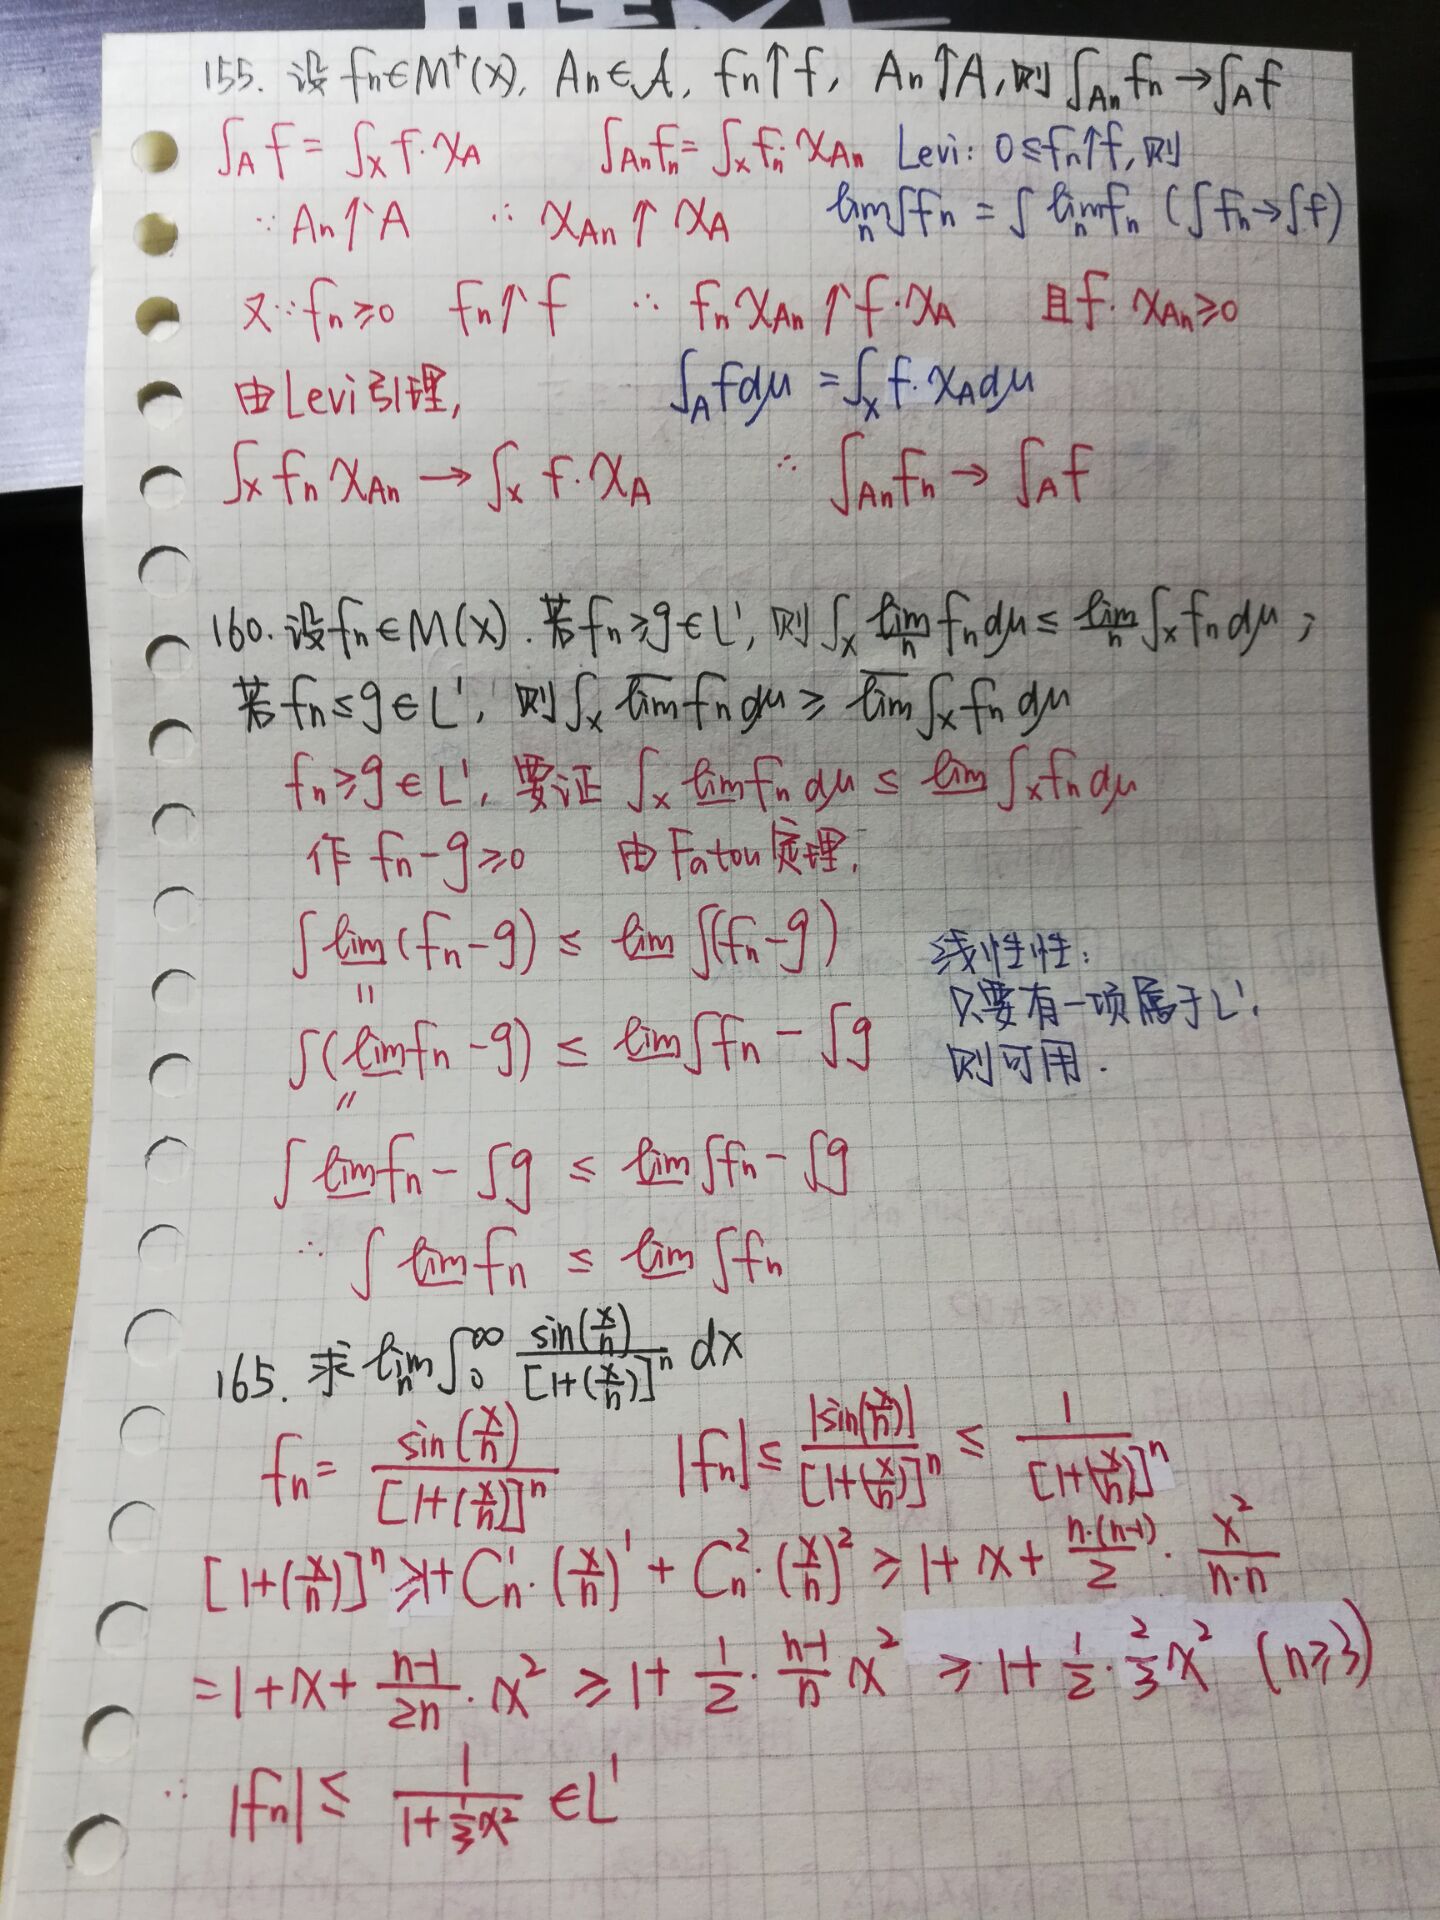 155. 设 fn∈M⁺(X), An∈𝒜, fn↑f, An↑A, 则 ∫_{An} fn → ∫_A f
∫_A f = ∫_X f·χ_A    ∫_{An} fn = ∫_X fn·χ_{An}    Levi: 0≤fn↑f, 则
∵ An↑A    ∴ χ_{An}↑χ_A    lim_n ∫fn = ∫ lim_n fn (∫fn→∫f)
又∵ fn≥0    fn↑f    ∴ fn χ_{An}↑f·χ_A    且 f·χ_{An}≥0
由Levi引理,    ∫_A f dμ = ∫_X f·χ_A dμ
∫_X fn χ_{An} → ∫_X f·χ_A    ∴ ∫_{An} fn → ∫_A f
160. 设 fn∈M(X). 若 fn≥g∈L¹, 则 ∫_X \underline{lim}_n fn dμ ≤ \underline{lim}_n ∫_X fn dμ;
若 fn≤g∈L¹, 则 ∫_X \overline{lim} fn dμ ≥ \overline{lim} ∫_X fn dμ
fn≥g∈L¹, 要证 ∫_X \underline{lim} fn dμ ≤ \underline{lim} ∫_X fn dμ
作 fn-g≥0    由Fatou定理,
∫ \underline{lim} (fn-g) ≤ \underline{lim} ∫(fn-g)
线性性:
〃
只要有一项属于L¹,
∫(\underline{lim} fn -g) ≤ \underline{lim} ∫fn - ∫g
则可用.
〃
∫ \underline{lim} fn - ∫g ≤ \underline{lim} ∫fn - ∫g
∴ ∫ \underline{lim} fn ≤ \underline{lim} ∫fn
165. 求 lim_n ∫_0^∞ sin(x/n) / [1+(x/n)]^n dx
fn = sin(x/n) / [1+(x/n)]^n    |fn| ≤ |sin(x/n)| / [1+(x/n)]^n ≤ 1 / [1+(x/n)]^n
[1+(x/n)]^n ≥ 1+C_n^1·(x/n)^1 + C_n^2·(x/n)^2 ≥ 1+x+ n·(n-1)/2 · x²/(n·n)
= 1+x+ (n-1)/(2n) · x² ≥ 1+ 1/2 · (n-1)/n x² ≥ 1+ 1/2 · 2/3 x² (n≥3)
∴ |fn| ≤ 1/(1+ 1/3 x²) ∈L¹